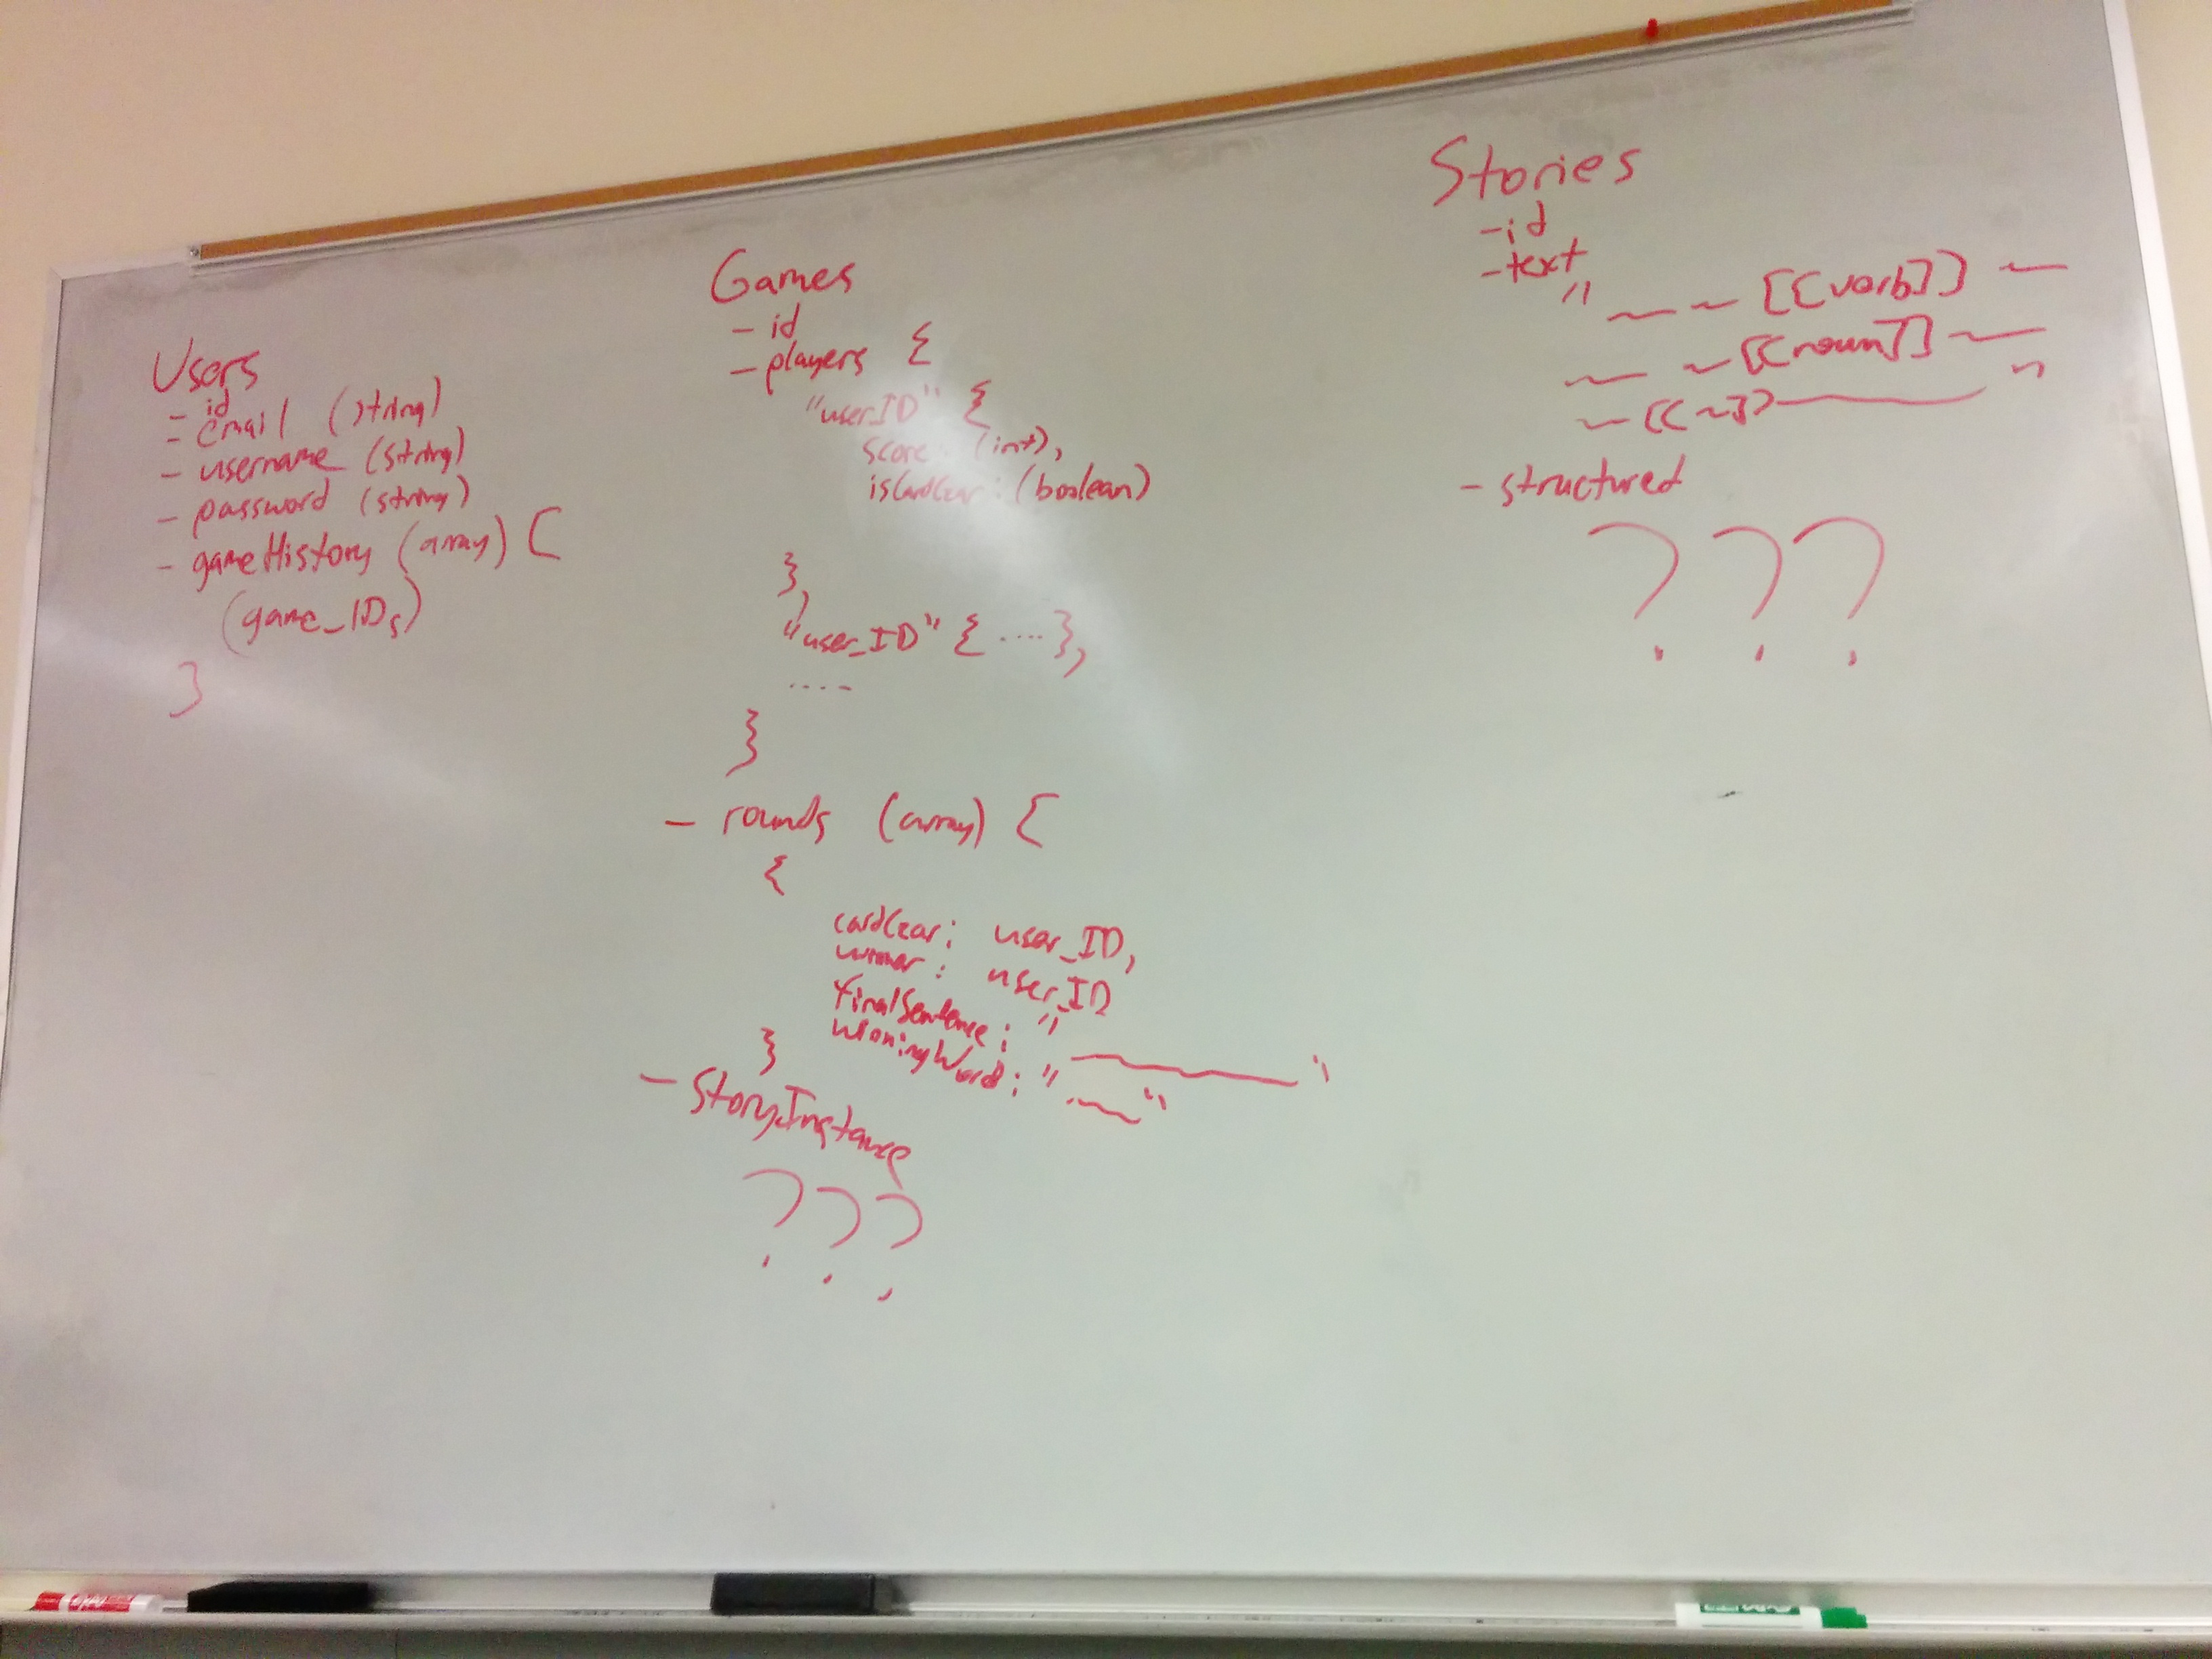 Users
- id
- email (string)
- username (string)
- password (string)
- gameHistory (array) [
(game_IDs)
]
Games
- id
- players {
"user_ID" {
score: (int),
isCardCzar: (boolean)
},
"user_ID" { .... },
....
}
- rounds (array) [
{
cardCzar: user_ID,
winner: user_ID
finalSentence: "
winningWord: " "
}
- StoryInstance
???
Stories
- id
- text
" [[verb]]
[[noun]]
[[ ]] "
- structured
???